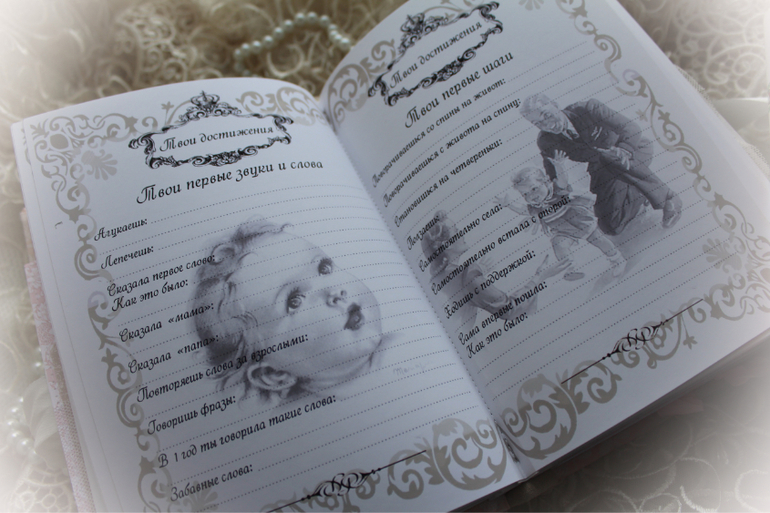 Твои достижения
Твои первые звуки и слова
Агукаешь:
Лепечешь:
Сказала первое слово:
Как это было:
Сказала «мама»:
Сказала «папа»:
Повторяешь слова за взрослыми:
Говоришь фразы:
В 1 год ты говорила такие слова:
Забавные слова:
Твои достижения
Твои первые шаги
Поворачиваешься со спины на живот:
Поворачиваешься с живота на спину:
Становишься на четвереньки:
Ползаешь:
Самостоятельно села:
Самостоятельно встала с опорой:
Ходишь с поддержкой:
Сама впервые пошла:
Как это было: